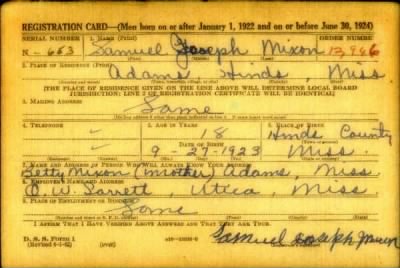 REGISTRATION CARD—(Men born on or after January 1, 1922 and on or before June 30, 1924)
SERIAL NUMBER 1. NAME (Print) ORDER NUMBER
N-653 Samuel Joseph Mixon 13,966
(First) (Middle) (Last)
2. PLACE OF RESIDENCE (Print)
Adams Hinds Miss
(Number and street) (Town, township, village, or city) (County) (State)
[THE PLACE OF RESIDENCE GIVEN ON THE LINE ABOVE WILL DETERMINE LOCAL BOARD
JURISDICTION; LINE 2 OF REGISTRATION CERTIFICATE WILL BE IDENTICAL]
3. MAILING ADDRESS
Same
[Mailing address if other than place indicated on line 2. If same insert word same]
4. TELEPHONE 5. AGE IN YEARS 6. PLACE OF BIRTH
18 Hinds County
DATE OF BIRTH (Town or county)
9-27-1923 Miss.
(Exchange) (Number) (Mo.) (Day) (Yr.) (State or country)
7. NAME AND ADDRESS OF PERSON WHO WILL ALWAYS KNOW YOUR ADDRESS
Betty Mixon (mother) Adams, Miss
8. EMPLOYER'S NAME AND ADDRESS
O. W. Garrett, Utica Miss.
9. PLACE OF EMPLOYMENT OR BUSINESS
Same
(Number and street or R. F. D. number) (Town) (County) (State)
I AFFIRM THAT I HAVE VERIFIED ABOVE ANSWERS AND THAT THEY ARE TRUE.
D. S. S. FORM 1
(Revised 6-9-42) (over) Samuel Joseph Mixon